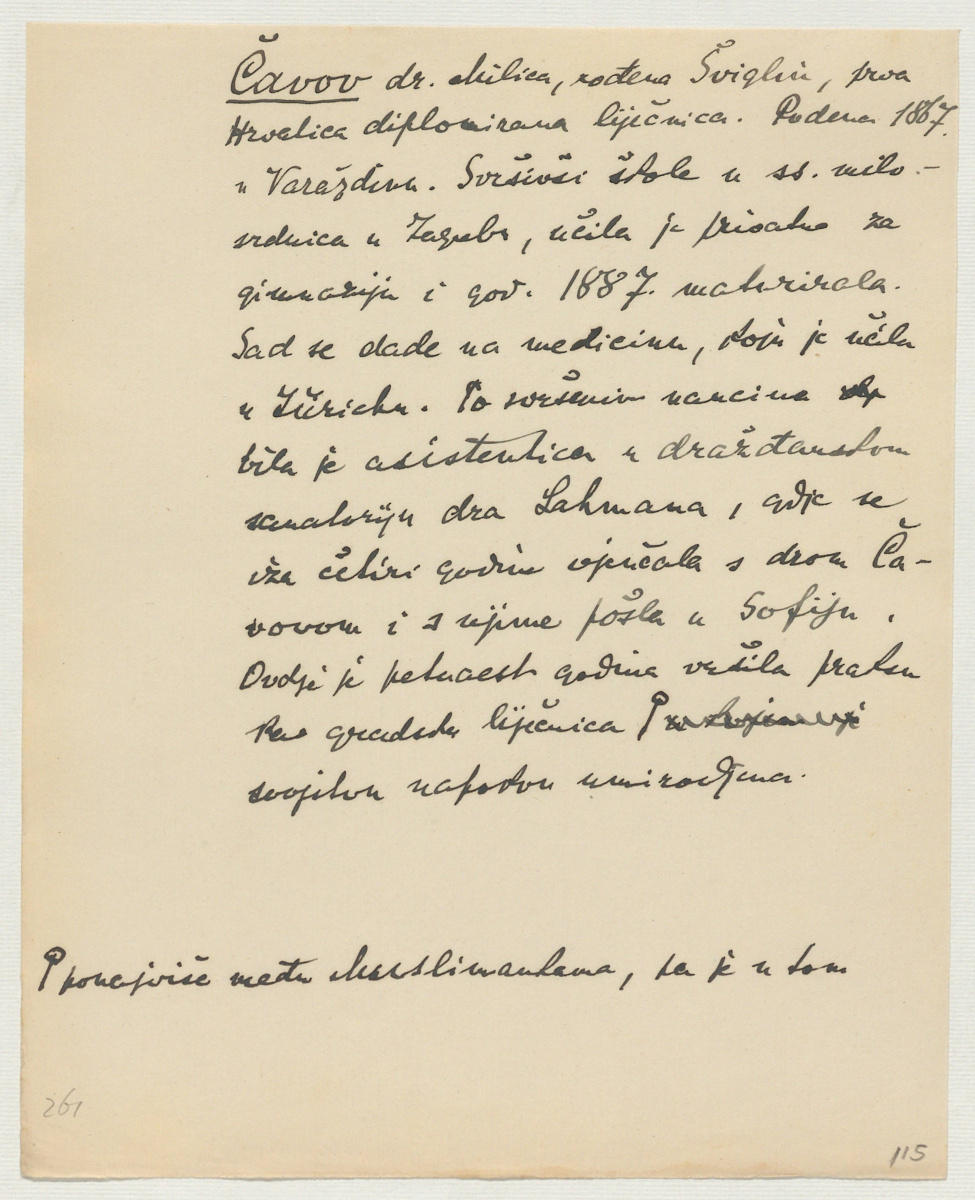 Čavov dr. Milica, rođena Šviglin, prva
Hrvatica diplomirana liječnica. Rođena 1867.
u Varaždinu. Svršivši škole u ss. milo-
srdnica u Zagrebu, učila je privatno za
gimnaziju i god. 1887. maturirala.
Sad se dade na medicinu, koju je učila
u Zürichu. Po svršenim naucima
bila je asistentica u draždanskom
sanatoriju dra Lahmana, gdje se
iza četiri godine vjenčala s drom Ča-
vovom i s njime pošla u Sofiju.
Ovdje je petnaest godina vršila praksu
kao gradska liječnica
svojstvu napokon umirovljena.
ponajviše među Muslimankama, pa je u tom
261
115